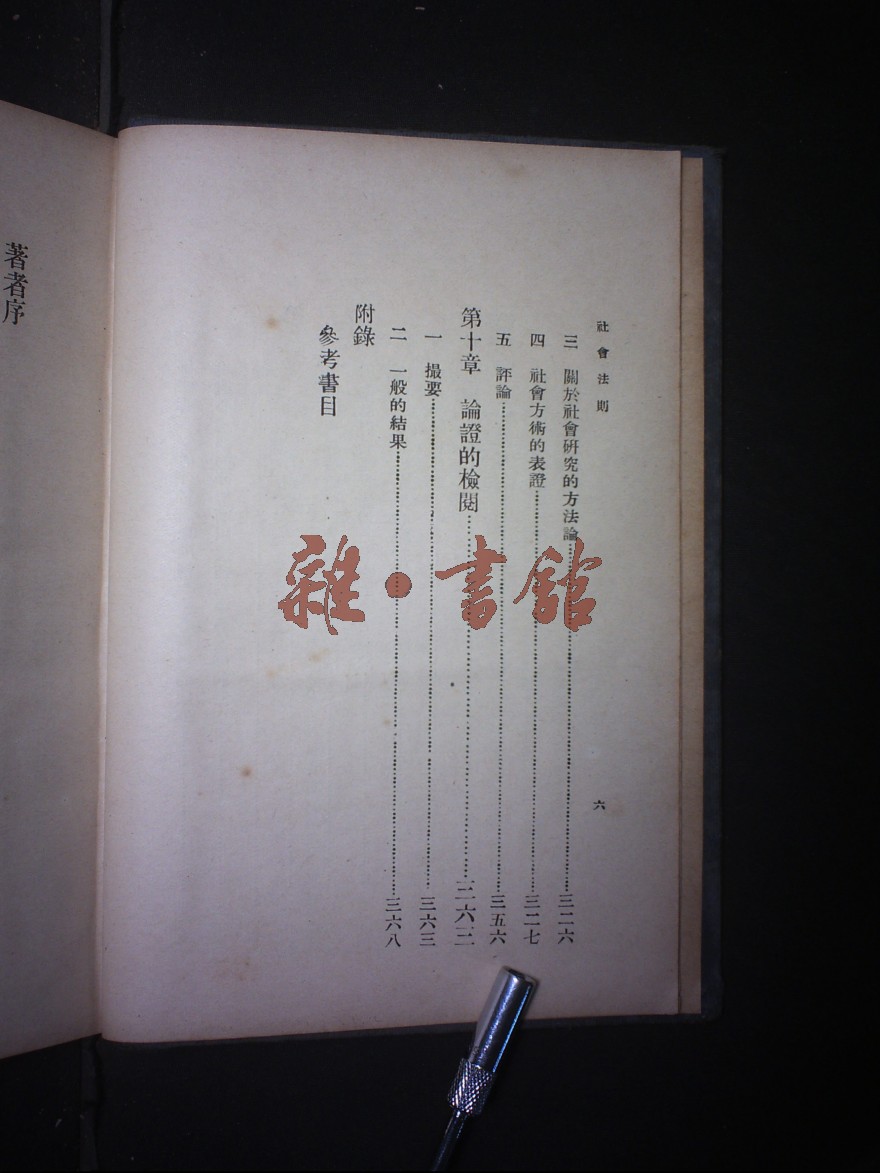 社會法則
六
三 關於社會研究的方法論……三二六
四 社會方術的表證……三二七
五 評論……三五六
第十章 論證的檢閱……三六三
一 撮要……三六三
二 一般的結果……三六八
附錄
參考書目
著者序
雜·書館